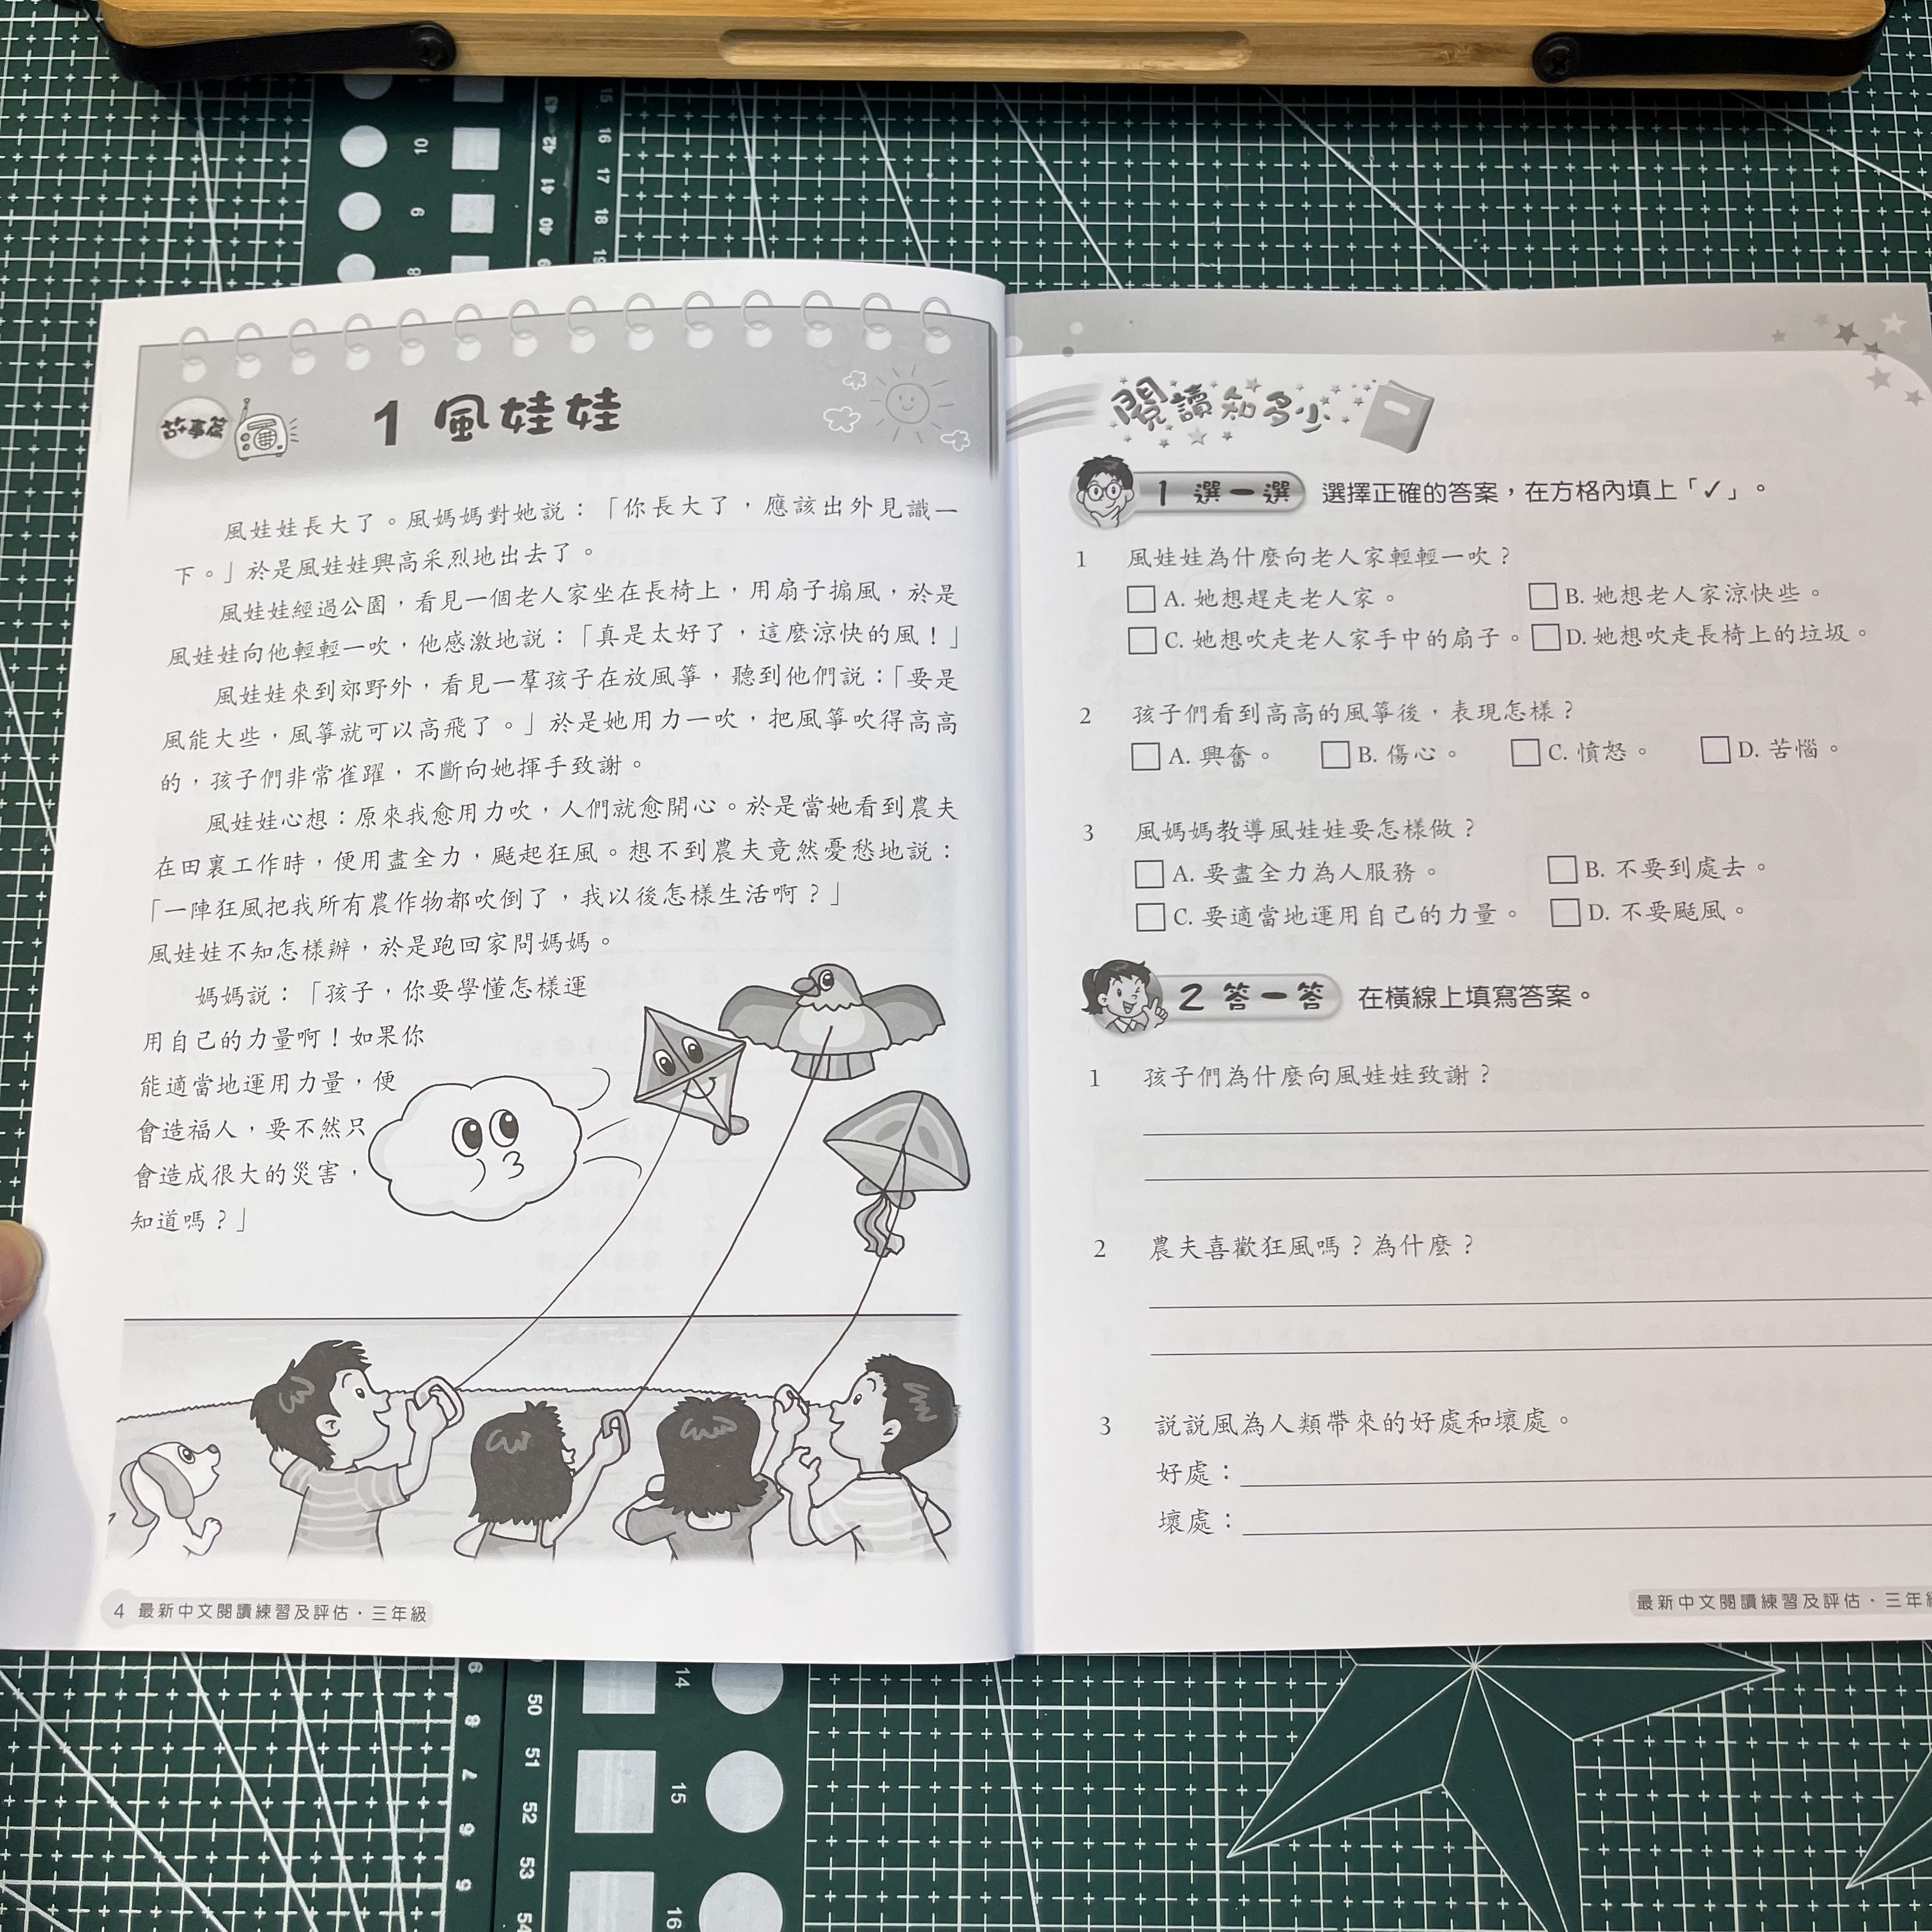 故事篇
1 風娃娃
風娃娃長大了。風媽媽對她説：「你長大了，應該出外見識一
下。」於是風娃娃興高采烈地出去了。
風娃娃經過公園，看見一個老人家坐在長椅上，用扇子搧風，於是
風娃娃向他輕輕一吹，他感激地説：「真是太好了，這麼涼快的風！」
風娃娃來到郊野外，看見一羣孩子在放風箏，聽到他們説：「要是
風能大些，風箏就可以高飛了。」於是她用力一吹，把風箏吹得高高
的，孩子們非常雀躍，不斷向她揮手致謝。
風娃娃心想：原來我愈用力吹，人們就愈開心。於是當她看到農夫
在田裏工作時，便用盡全力，颳起狂風。想不到農夫竟然憂愁地説：
「一陣狂風把我所有農作物都吹倒了，我以後怎樣生活啊？」
風娃娃不知怎樣辦，於是跑回家問媽媽。
媽媽説：「孩子，你要學懂怎樣運
用自己的力量啊！如果你
能適當地運用力量，便
會造福人，要不然只
會造成很大的災害，
知道嗎？」
4 最新中文閱讀練習及評估·三年級
閱讀知多少
1 選一選 選擇正確的答案，在方格內填上「✓」。
1 風娃娃為什麼向老人家輕輕一吹？
A. 她想趕走老人家。 B. 她想老人家涼快些。
C. 她想吹走老人家手中的扇子。 D. 她想吹走長椅上的垃圾。
2 孩子們看到高高的風箏後，表現怎樣？
A. 興奮。 B. 傷心。 C. 憤怒。 D. 苦惱。
3 風媽媽教導風娃娃要怎樣做？
A. 要盡全力為人服務。 B. 不要到處去。
C. 要適當地運用自己的力量。 D. 不要颳風。
2 答一答 在橫線上填寫答案。
1 孩子們為什麼向風娃娃致謝？
2 農夫喜歡狂風嗎？為什麼？
3 説説風為人類帶來的好處和壞處。
好處：
壞處：
最新中文閱讀練習及評估·三年級
10
9
8
43
42
41
40
15
16
17
18
19
9
8
7
6
5
50
51
52
53
54
14
15
16